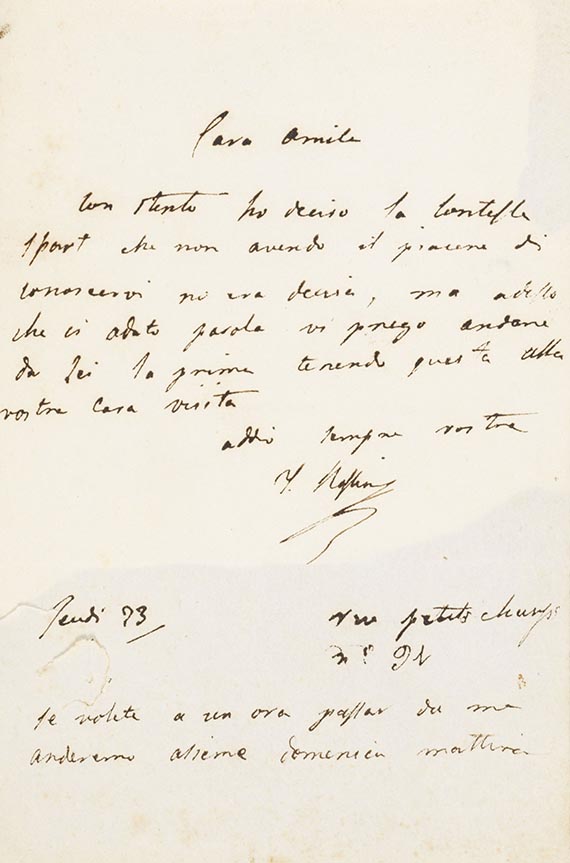 Cara Amile
Con stento ho deciso la Contessa
Sport che non avendo il piacere di
conoscervi no era decisa, ma adesso
che ci a dato parola vi priego andare
da Lei la prima tenendo questa alla
vostra cara visita
addio sempre vostra
Jeudi 23
rue petits champs
n° 92
se volete a un ora passar da me
anderemo asieme domenica mattina